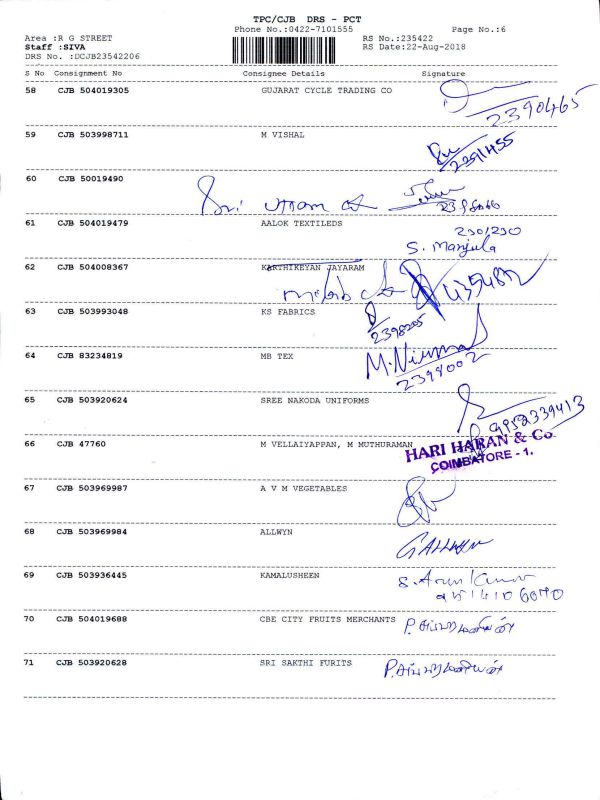 TPC/CJB DRS - PCT
Phone No.:0422-7101555 Page No.:6
Area :R G STREET RS No.:235422
Staff :SIVA RS Date:22-Aug-2018
DRS No. :DCJB23542206
S No Consignment No Consignee Details Signature
58 CJB 504019305 GUJARAT CYCLE TRADING CO
2390465
59 CJB 503998711 M VISHAL
2391455
60 CJB 50019490
Sri
61 CJB 504019479 AALOK TEXTILEDS
230/230
S. Manjula
62 CJB 504008367 KARTHIKEYAN JAYARAM
63 CJB 503993048 KS FABRICS
2398205
64 CJB 83234819 MB TEX
M. Nirmal
2398002
65 CJB 503920624 SREE NAKODA UNIFORMS
9952339413
66 CJB 47760 M VELLAIYAPPAN, M MUTHURAMAN
HARI HARAN & Co
COIMBATORE - 1.
67 CJB 503969987 A V M VEGETABLES
68 CJB 503969984 ALLWYN
G ALLWYN
69 CJB 503936445 KAMALUSHEEN
S. Arun Kumar
70 CJB 504019688 CBE CITY FRUITS MERCHANTS
71 CJB 503920628 SRI SAKTHI FURITS